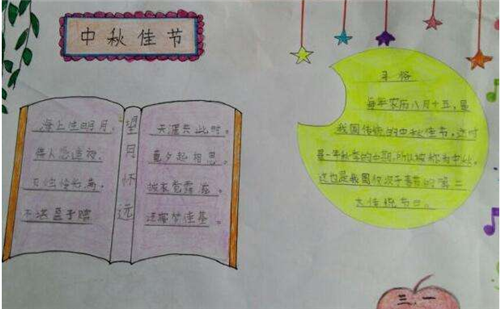 中秋佳节
望月怀远
海上佳明月，
情人怨遥夜，
灭烛怜光满，
不堪盈手赠
天涯共此时。
竟夕起相思。
披衣觉露滋。
还寝梦佳期。
习俗
每年农历八月十五，是
我国传统的中秋佳节。这时
是一年秋季的中期，所以被称为中秋。
这也是我国仅次于春节的第二
大传统节日。
三.一